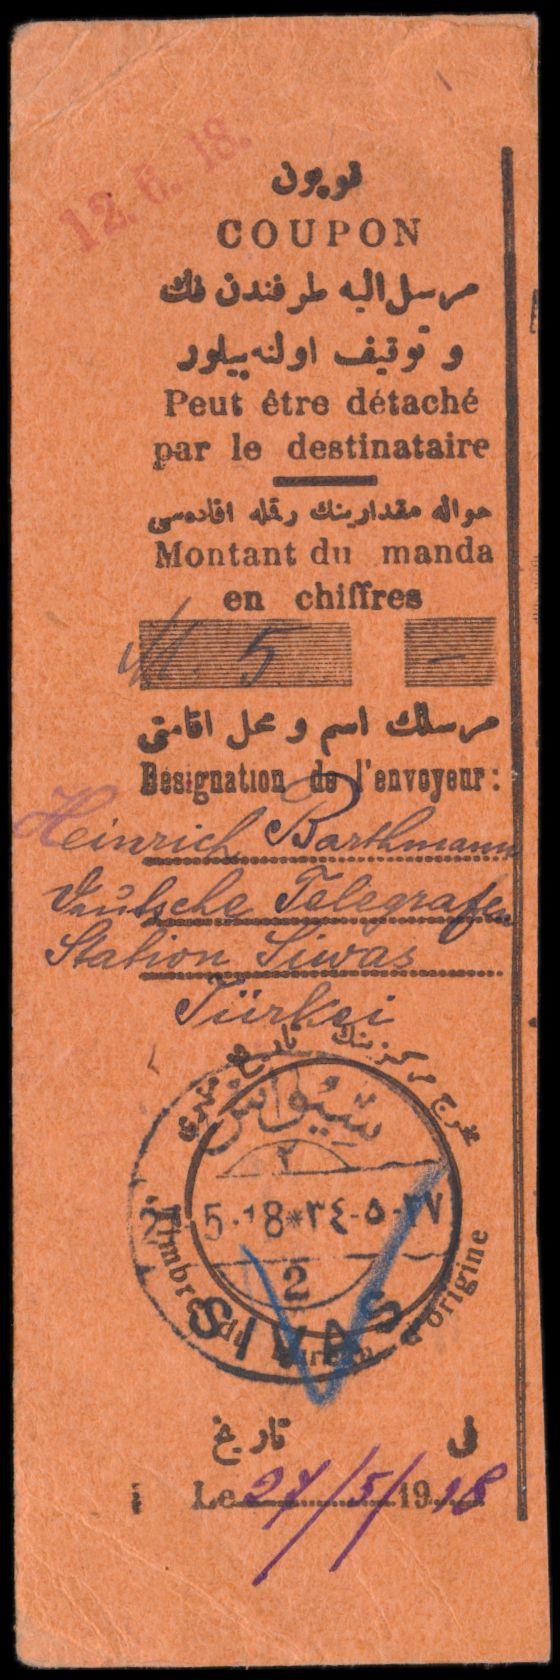 12. 6. 18.
قوپون
COUPON
مرسل اليه طرفندن فك
و توقيف اولنه بيلور
Peut être détaché
par le destinataire
حواله مقدارينك رقمله افاده‌سى
Montant du manda
en chiffres
M. 5 -
مرسلك اسم و محل اقامتى
Désignation de l'envoyeur:
Heinrich Barthmann
Deutsche Telegrafen
Station Siwas
Türkei
مخرج مركزينك تاريخ مهرى
سيواس
٢
5-18*٣٤-٥-٢٧
2
SIVAS
Timbre du bureau d'origine
فى تاريخ
Le 27/5/ 1918